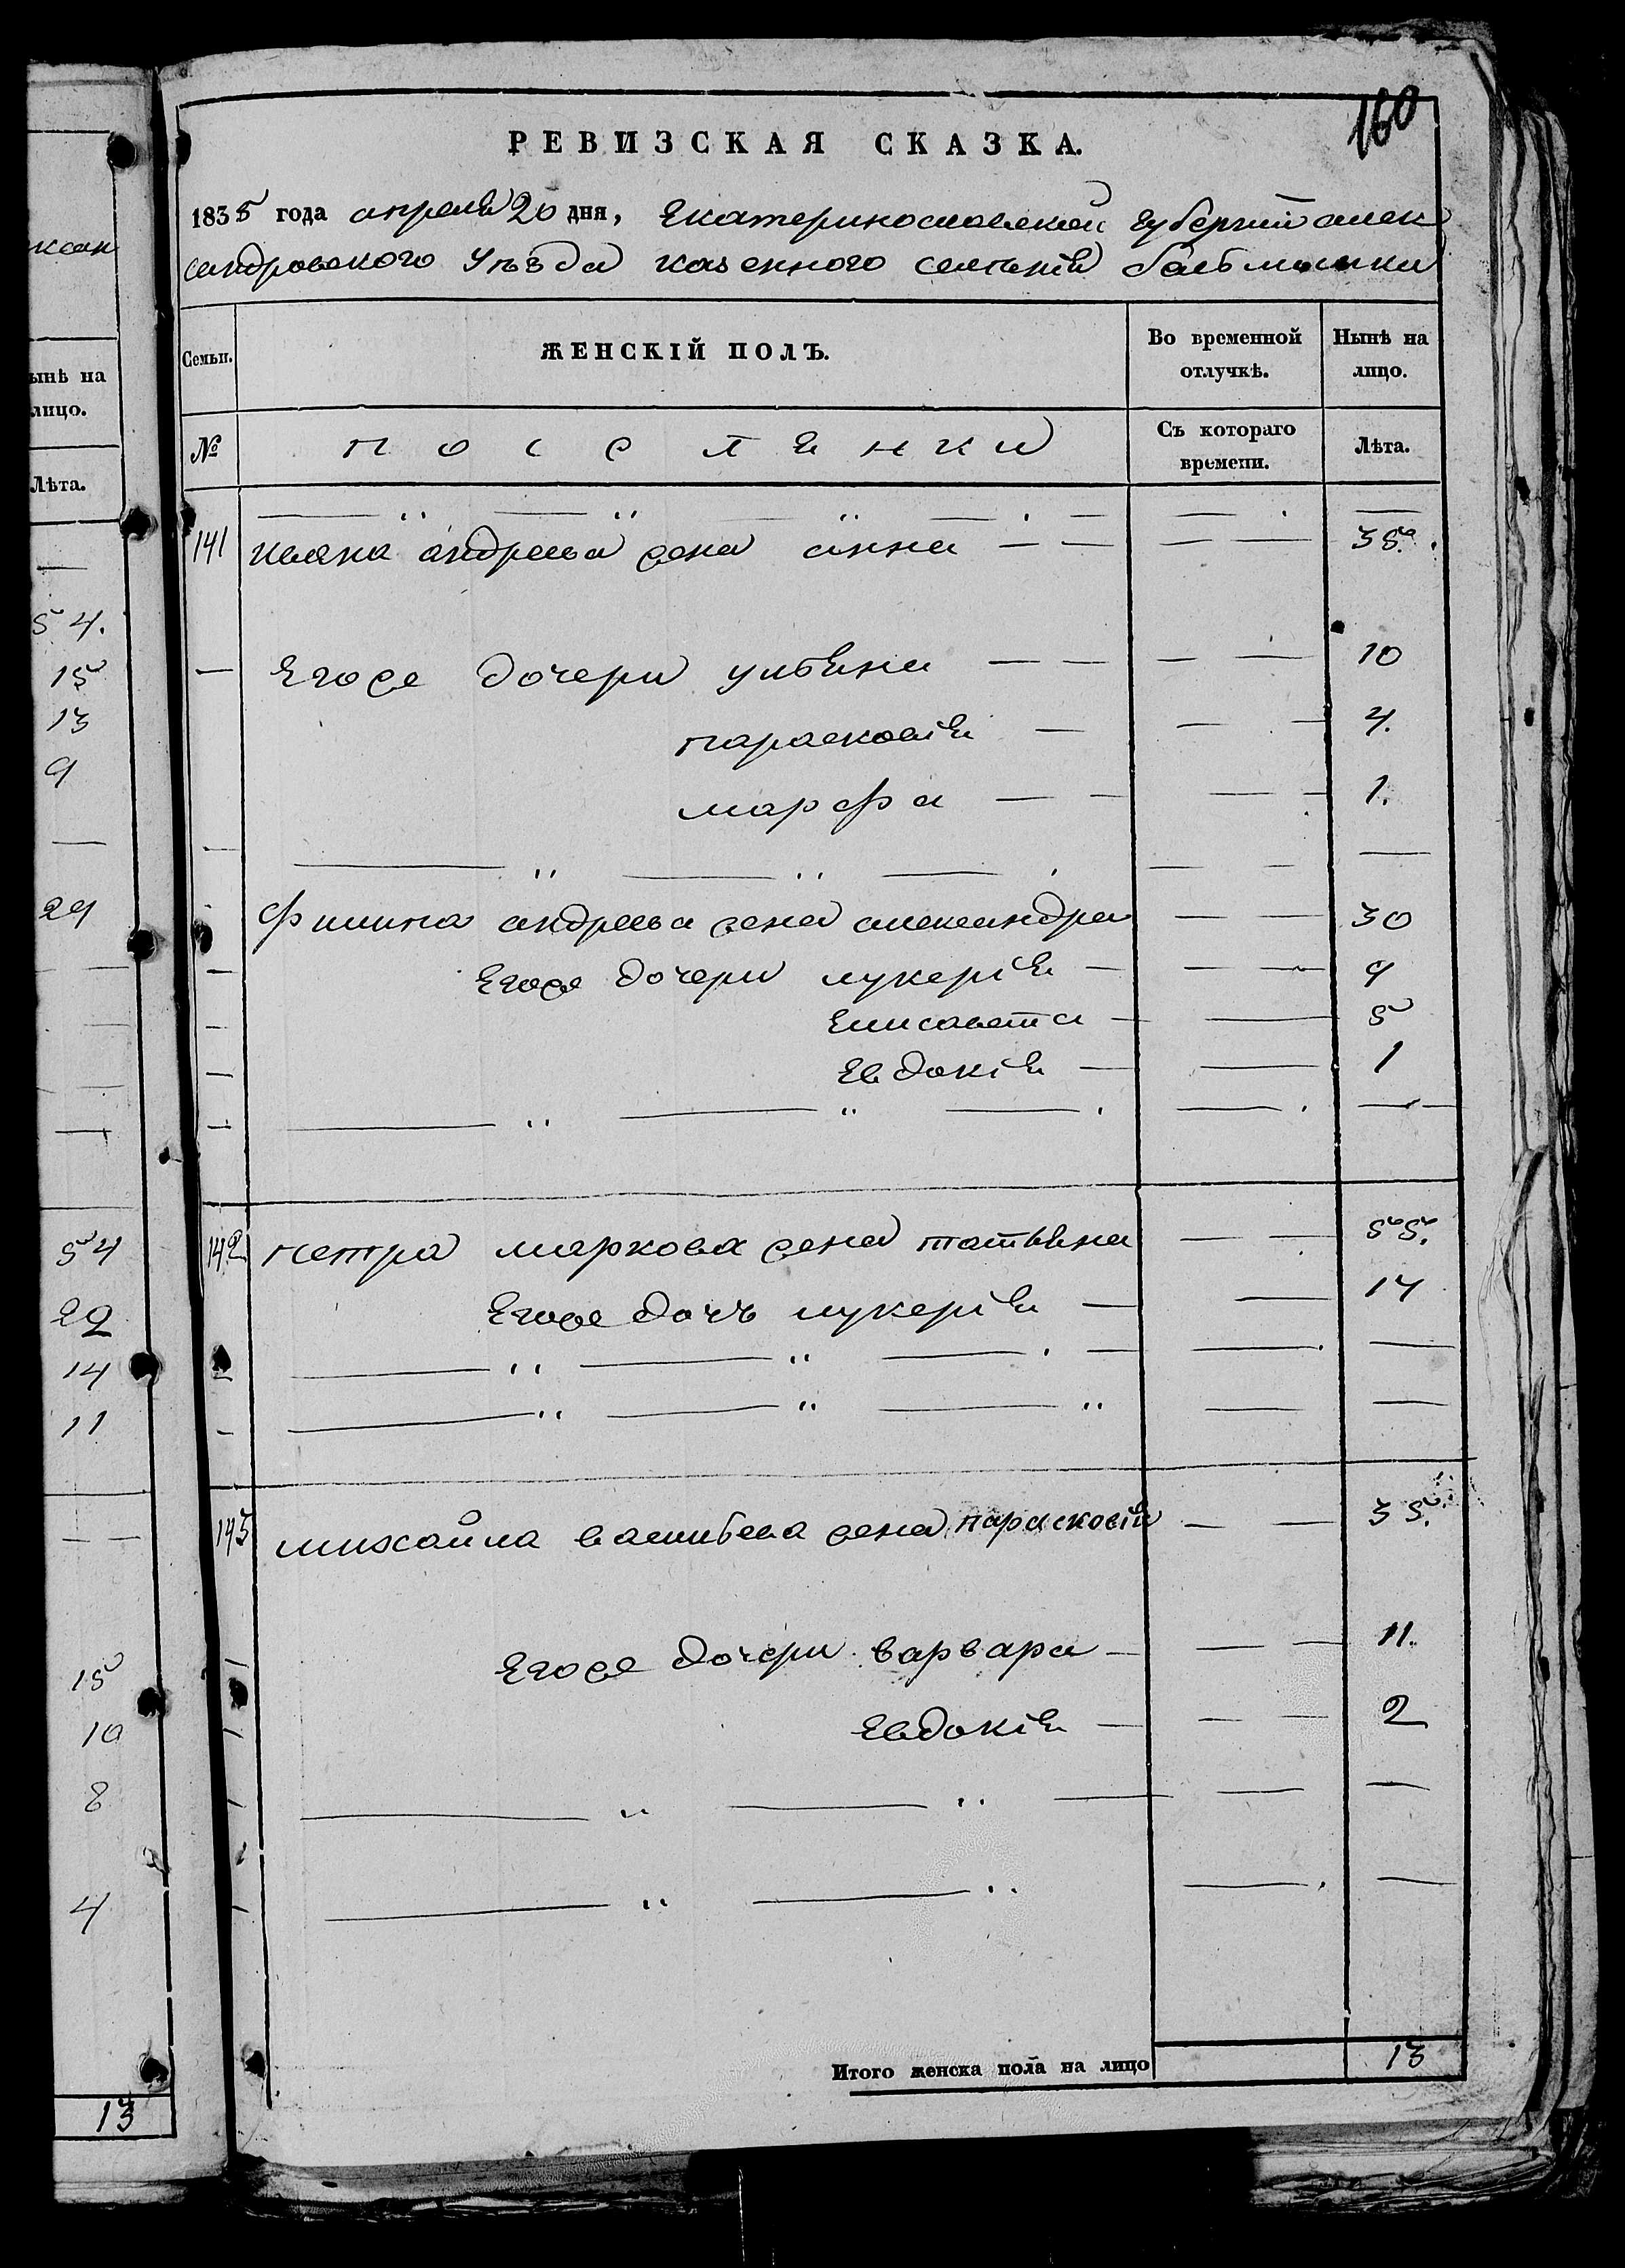 160
РЕВИЗСКАЯ СКАЗКА.
1835 года апреля 20 дня, Екатеринославской губернии алек
сандровского Уѣзда казенного селения
Семьи. ЖЕНСКІЙ ПОЛЪ. Во временной отлучкѣ. Нынѣ на лицо.
№ поселенки Съ котораго времени. Лѣта.
141 Ивана андреева жена анна — — — — 35.
— Егоже дочери ульяна — — — — 10
парасковія — — — 4.
марфа — — — — 1.
Филипа андреева жена александра — — 30
— Егоже дочери лукерія — — — 9
— Елисавета — — 5
— Евдокія — — 1
142 петра маркова жена татьяна — — 55.
Егоже дочь лукерія — — 14
143 михайла васильева жена парасковія — — 35.
— Егоже дочери варвара — — — 11.
— Евдокія — — — 2
Итого женска пола на лицо 13
ксан
ынѣ на
лицо.
Лѣта.
54.
15
13
9
29
54
22
14
11
15
10
8
4
13